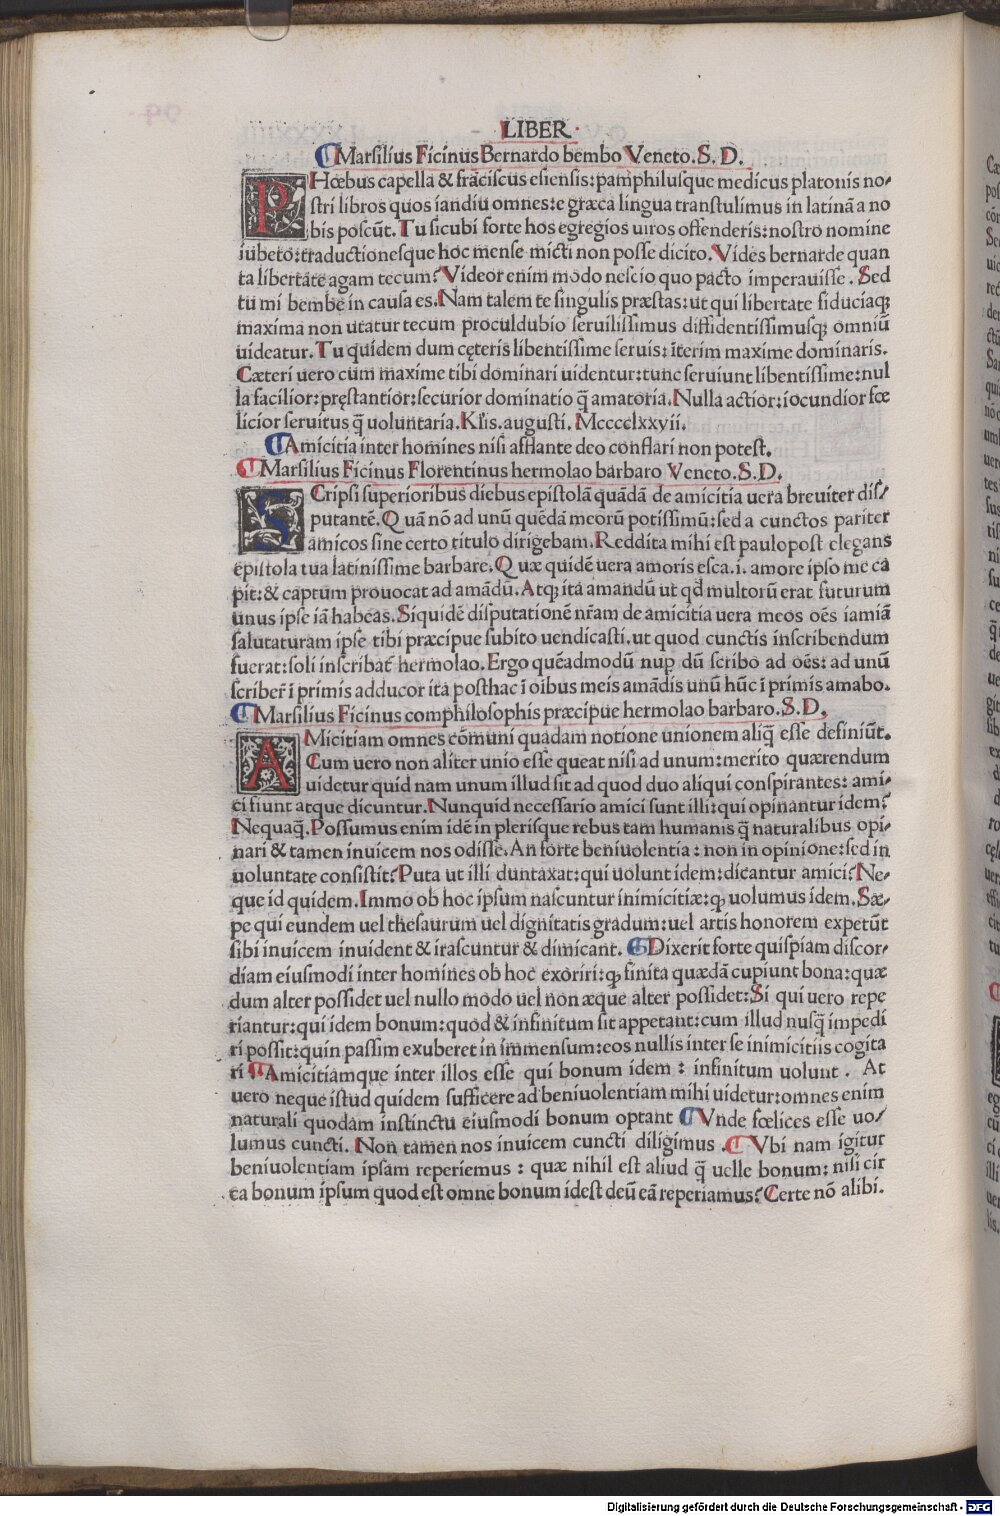 LIBER
Marſilius Ficinus Bernardo bembo Veneto. S. D.
PHœbus capella & frãciſcus eſienſis: pamphiluſque medicus platonis no⸗
ſtri libros quos iandiu omnes: e græca lingua tranſtulimus in latinã a no
bis poſcũt. Tu ſicubi forte hos egregios uiros offenderis: noſtro nomine
iubeto: traductioneſque hoc menſe micti non poſſe dicito. Vides bernarde quan
ta libertate agam tecum? Videor enim modo neſcio quo pacto imperauiſſe. Sed
tu mi bembe in cauſa es. Nam talem te ſingulis præſtas: ut qui libertate fiduciaqꝫ
maxima non utatur tecum proculdubio ſeruiliſſimus diffidentiſſimuſqꝫ omniũ
uideatur. Tu quidem dum cęteris libentiſſime ſeruis: ĩterim maxime dominaris.
Cæteri uero cum maxime tibi dominari uidentur: tunc ſeruiunt libentiſſime: nul
la facilior: pręſtantior: ſecurior dominatio q̃ amatoria. Nulla actior: iocundior fœ
licior ſeruitus q̃ uoluntaria. Kl'is. auguſti. Mccccclxxvii.
Amicitia inter homines niſi afflante deo conflari non poteſt.
Marſilius Ficinus Florentinus hermolao barbaro Veneto. S. D.
SCripſi ſuperioribus diebus epiſtolã quãdã de amicitia uera breuiter diſ⸗
putantẽ. Quã nõ ad unũ quẽdã meorũ potiſſimũ: ſed a cunctos pariter
amicos ſine certo titulo dirigebam. Reddita mihi eſt paulopoſt elegans
epiſtola tua latiniſſime barbare. Quæ quidẽ uera amoris eſca. i. amore ipſo me ca
pit: & captum prouocat ad amãdũ. Atqꝫ ita amandũ ut qd̃ multorũ erat futurum
unus ipſe iã habeas. Siquidẽ diſputationẽ nr̃am de amicitia uera meos oẽs iamiã
ſalutaturam ipſe tibi præcipue ſubito uendicaſti. ut quod cunctis inſcribendum
fuerat: ſoli inſcribat̃ hermolao. Ergo quẽadmodũ nuꝑ dũ ſcribo ad oẽs: ad unũ
ſcriber̃ ĩ primis adducor ita poſthac ĩ oibus meis amãdis unũ hũc ĩ primis amabo.
Marſilius Ficinus comphiloſophis præcipue hermolao barbaro. S. D.
AMicitiam omnes cõmuni quadam notione unionem aliq̃ eſſe definiũt.
Cum uero non aliter unio eſſe queat niſi ad unum: merito quærendum
uidetur quid nam unum illud ſit ad quod duo aliqui conſpirantes: ami⸗
ci fiunt atque dicuntur. Nunquid neceſſario amici ſunt illi: qui opinantur idem?
Nequaq̃. Poſſumus enim idẽ in pleriſque rebus tam humanis q̃ naturalibus opi⸗
nari & tamen inuicem nos odiſſe. An forte beniuolentia: non in opinione: ſed in
uoluntate conſiſtit? Puta ut illi duntaxat: qui uolunt idem: dicantur amici? Ne⸗
que id quidem. Immo ob hoc ipſum naſcuntur inimicitiæ: qꝫ uolumus idem. Sæ⸗
pe qui eundem uel theſaurum uel dignitatis gradum: uel artis honorem expetũt
ſibi inuicem inuident & iraſcuntur & dimicant. Dixerit forte quiſpiam diſcor⸗
diam eiuſmodi inter homines ob hoc exoriri: qꝫ finita quædã cupiunt bona: quæ
dum alter poſſidet uel nullo modo uel non æque alter poſſidet: Si qui uero repe
riantur: qui idem bonum: quod & infinitum ſit appetant: cum illud nuſq̃ impedi
ri poſſit: quin paſſim exuberet in immenſum: eos nullis inter ſe inimicitiis cogita
ri Amicitiamque inter illos eſſe qui bonum idem: infinitum uolunt. At
uero neque iſtud quidem ſufficere ad beniuolentiam mihi uidetur: omnes enim
naturali quodam inſtinctu eiuſmodi bonum optant Vnde fœlices eſſe uo⸗
lumus cuncti. Non tamen nos inuicem cuncti diligimus. Vbi nam igitur
beniuolentiam ipſam reperiemus: quæ nihil eſt aliud q̃ uelle bonum: niſi cir
ca bonum ipſum quod eſt omne bonum ideſt deũ eã reperiamus? Certe nõ alibi.
Digitalisierung gefördert durch die Deutsche Forschungsgemeinschaft - DFG